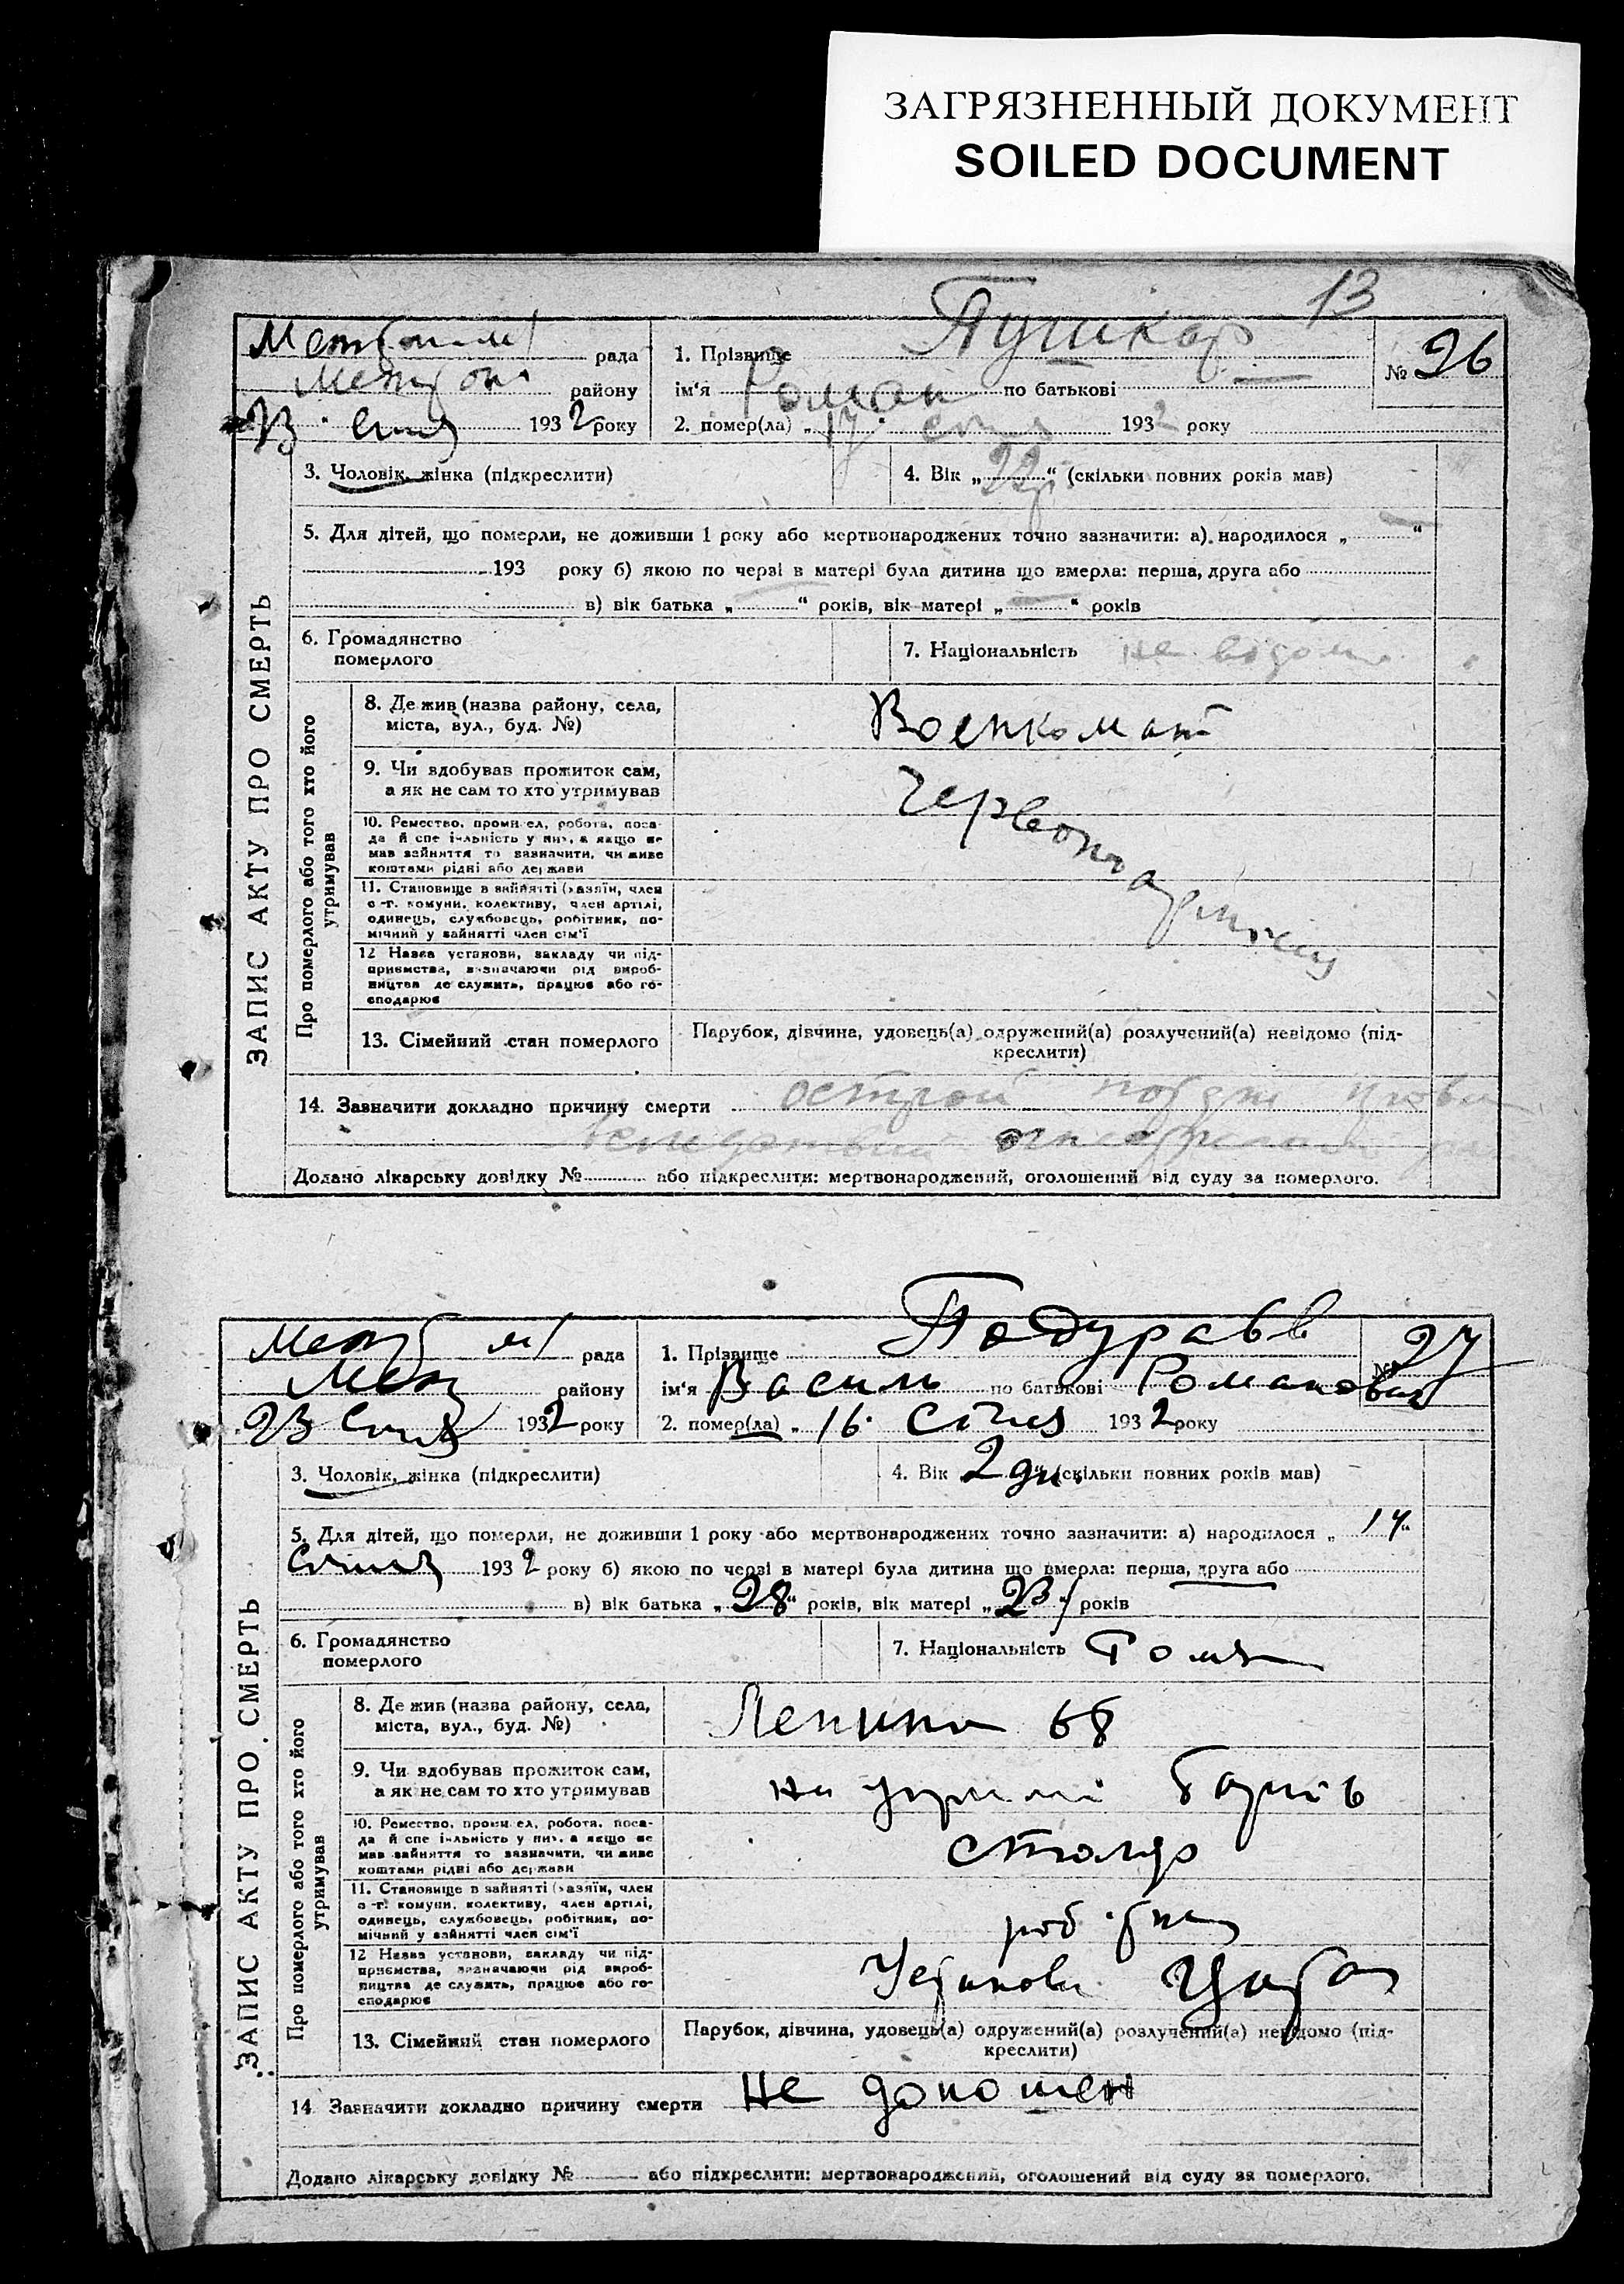 ЗАГРЯЗНЕННЫЙ ДОКУМЕНТ
SOILED DOCUMENT
13
рада
району
23 січня 1932 року
1. Прізвище Пушкар
ім'я Роман по батькові
2. помер(ла) „17 січня 1932 року
№ 26
ЗАПИС АКТУ ПРО СМЕРТЬ
3. Чоловік, жінка (підкреслити)
4. Вік „22р“ (скільки повних років мав)
5. Для дітей, що померли, не доживши 1 року або мертвонароджених точно зазначити: а) народилося „ “
193 року б) якою по черзі в матері була дитина що вмерла: перша, друга або
в) вік батька „ “ років, вік матері „ “ років
6. Громадянство
померлого
7. Національність не відомо
Про померлого або того хто його
утримував
8. Де жив (назва району, села,
міста, вул., буд. №)
Военкомат
9. Чи здобував прожиток сам,
а як не сам то хто утримував
Червоно
армієць
10. Ремество, промисел, робота, поса-
да й спеціяльність у них, а якщо не
мав зайняття то зазначити, чи живе
коштами рідні або держави
11. Становище в зайнятті (хазяїн, член
с.-г. комуни, колективу, член артілі,
одинець, службовець, робітник, по-
мічний у зайнятті член сім'ї
12 Назва установи, закладу чи під-
приємства, визначаючи рід вироб-
ництва де служить, працює або го-
сподарює
13. Сімейний стан померлого
Парубок, дівчина, удовець(а) одружений(а) розлучений(а) невідомо (під-
креслити)
14. Зазначити докладно причину смерти острой
Додано лікарську довідку № або підкреслити: мертвонароджений, оголошений від суду за померлого.
рада
району
23 січня 1932 року
1. Прізвище
ім'я Василь по батькові Романович
2. помер(ла) „16 січня 1932 року
№ 27
ЗАПИС АКТУ ПРО СМЕРТЬ
3. Чоловік, жінка (підкреслити)
4. Вік 2 дн. (скільки повних років мав)
5. Для дітей, що померли, не доживши 1 року або мертвонароджених точно зазначити: а) народилося „14“
січня 1932 року б) якою по черзі в матері була дитина що вмерла: перша, друга або
в) вік батька „28“ років, вік матері „23“ років
6. Громадянство
померлого
7. Національність
Про померлого або того хто його
утримував
8. Де жив (назва району, села,
міста, вул., буд. №)
Ленина 68
9. Чи здобував прожиток сам,
а як не сам то хто утримував
на утримі батьків
10. Ремество, промисел, робота, поса-
да й спеціяльність у них, а якщо не
мав зайняття то зазначити, чи живе
коштами рідні або держави
столяр
11. Становище в зайнятті (хазяїн, член
с.-г. комуни, колективу, член артілі,
одинець, службовець, робітник, по-
мічний у зайнятті член сім'ї
робітник
12 Назва установи, закладу чи під-
приємства, визначаючи рід вироб-
ництва де служить, працює або го-
сподарює
13. Сімейний стан померлого
Парубок, дівчина, удовець(а) одружений(а) розлучений(а) невідомо (під-
креслити)
14 Зазначити докладно причину смерти не доношен
Додано лікарську довідку № або підкреслити: мертвонароджений, оголошений від суду за померлого.